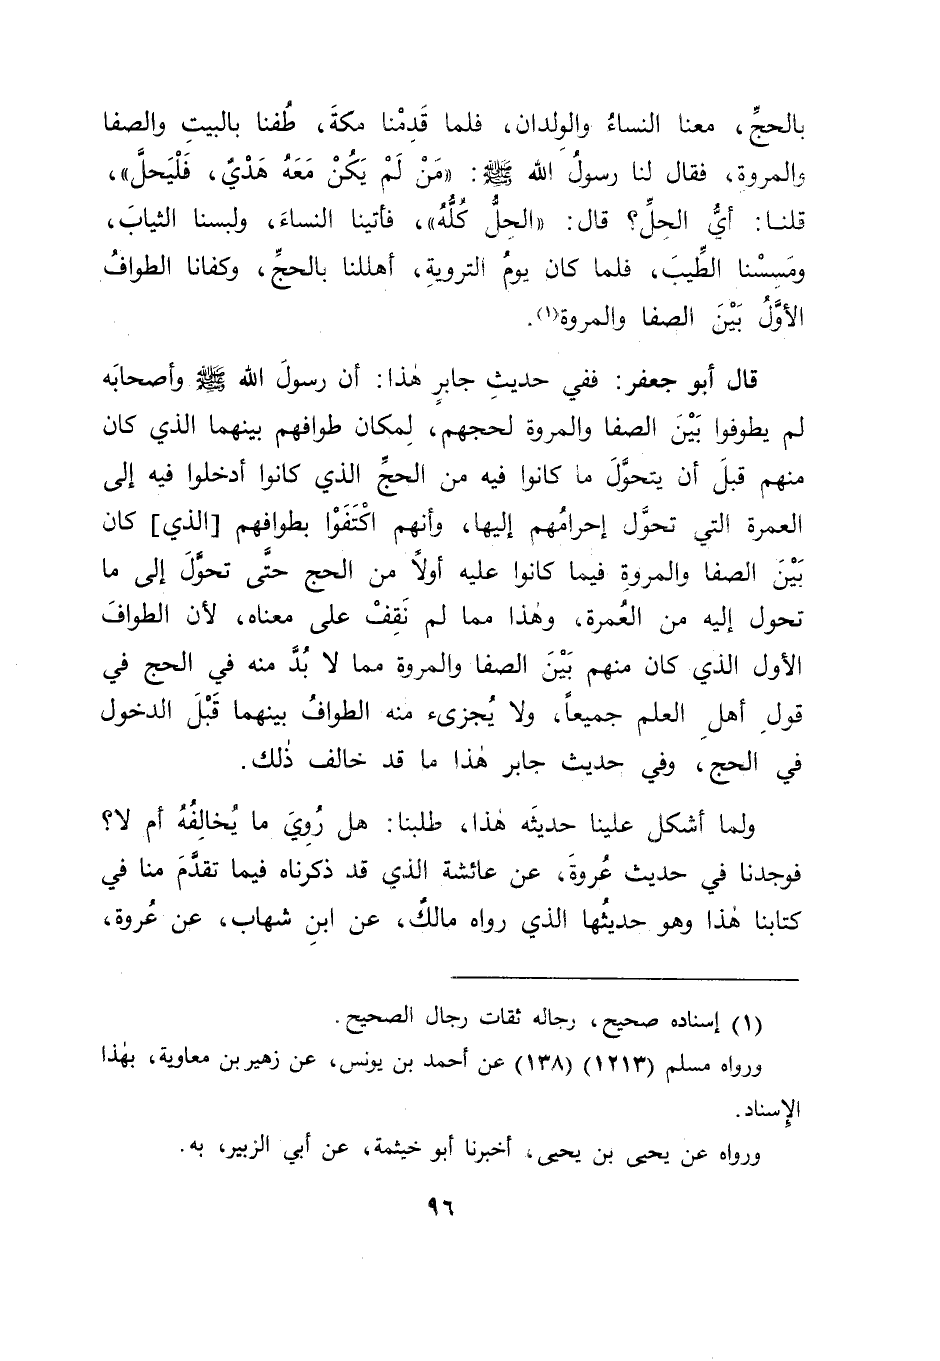 بالحجِّ، معنا النساءُ والوِلدان، فلما قَدِمْنا مكةَ، طُفنا بالبيتِ والصفا
والمروة، فقال لنا رسولُ الله ﷺ: «مَنْ لَمْ يَكُنْ مَعَهُ هَدْيٌ، فَلْيَحلَّ»،
قلنا: أيُّ الحلِّ؟ قال: «الحلُّ كُلُّهُ»، فأتينا النساءَ، ولبسنا الثيابَ،
ومَسِسْنا الطِّيبَ، فلما كان يومُ الترويةِ، أهللنا بالحجِّ، وكفانا الطوافُ
الأوَّلُ بَيْنَ الصفا والمروة(١).
قال أبو جعفر: ففي حديثِ جابرٍ هٰذا: أن رسولَ الله ﷺ وأصحابَه
لم يطوفوا بَيْنَ الصفا والمروة لحجهم، لِمكان طوافهم بينهما الذي كان
منهم قبلَ أن يتحوَّلَ ما كانوا فيه من الحجِّ الذي كانوا أدخلوا فيه إلى
العمرة التي تحوَّل إحرامُهم إليها، وأنهم اكْتَفَوْا بطوافهم [الذي] كان
بَيْنَ الصفا والمروةِ فيما كانوا عليه أولاً من الحج حتَّى تحوَّلَ إلى ما
تحول إليه من العُمرة، وهٰذا مما لم نَقِفْ على معناه، لأن الطوافَ
الأول الذي كان منهم بَيْنَ الصفا والمروة مما لا بُدَّ منه في الحج في
قولِ أهلِ العلم جميعاً، ولا يُجزىء منه الطوافُ بينهما قَبْلَ الدخول
في الحج، وفي حديث جابر هٰذا ما قد خالف ذٰلك.
ولما أشكل علينا حديثَه هٰذا، طلبنا: هل رُوِيَ ما يُخالِفُهُ أم لا؟
فوجدنا في حديث عُروةَ، عن عائشة الذي قد ذكرناه فيما تقدَّمَ منا في
كتابنا هٰذا وهو حديثُها الذي رواه مالكٌ، عن ابنِ شهاب، عن عُروة،
(١) إسناده صحيح، رجاله ثقات رجال الصحيح.
ورواه مسلم (١٢١٣) (١٣٨) عن أحمد بن يونس، عن زهير بن معاوية، بهٰذا
الإِسناد.
ورواه عن يحيى بن يحيى، أخبرنا أبو خيثمة، عن أبي الزبير، به.
٩٦